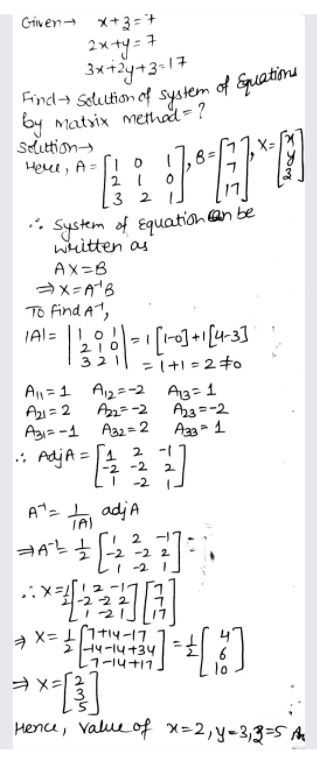 Given→ x+z=7
2x+y=7
3x+2y+z=17
Find→ Solution of system of Equations
by matrix method=?
Solution→
Here, A=[1 0 1; 2 1 0; 3 2 1], B=[7; 7; 17], X=[x; y; z]
∴ System of Equation can be
written as
AX=B
⇒X=A⁻¹B
To find A⁻¹,
|A|=|1 0 1; 2 1 0; 3 2 1|=1[1-0]+1[4-3]
=1+1=2≠0
A₁₁=1 A₁₂=-2 A₁₃=1
A₂₁=2 A₂₂=-2 A₂₃=-2
A₃₁=-1 A₃₂=2 A₃₃=1
∴ AdjA=[1 2 -1; -2 -2 2; 1 -2 1]
A⁻¹=1/|A| adjA
⇒A⁻¹=1/2[1 2 -1; -2 -2 2; 1 -2 1]
∴X=1/2[1 2 -1; -2 -2 2; 1 -2 1][7; 7; 17]
⇒X=1/2[7+14-17; -14-14+34; 7-14+17]=1/2[4; 6; 10]
⇒X=[2; 3; 5]
Hence, value of x=2, y=3, z=5